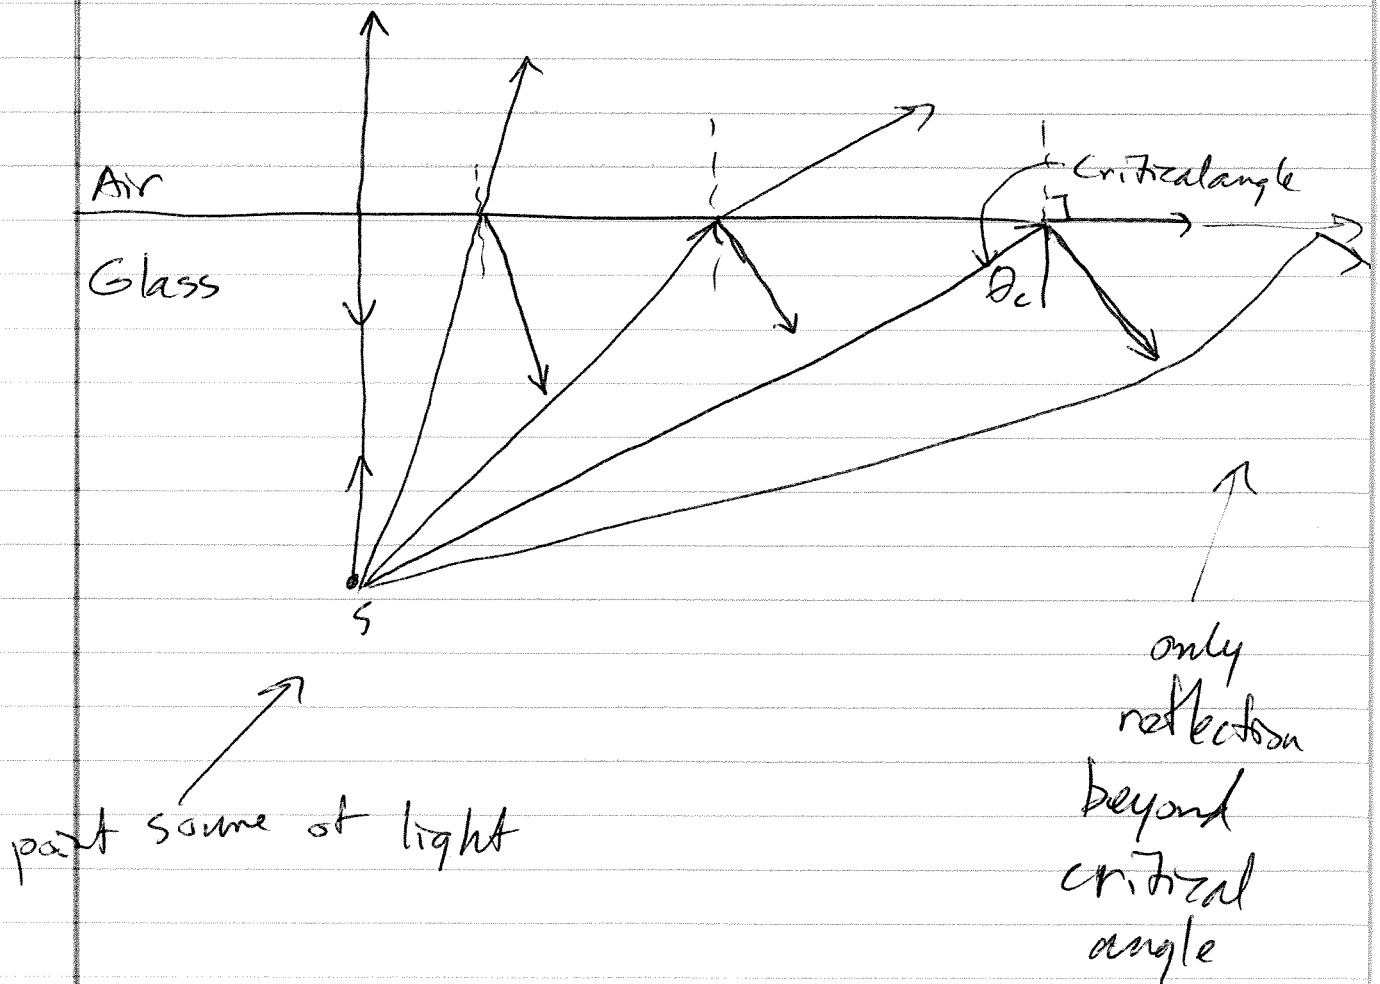 Air
Critical angle
Glass
θc
S
point source of light
only
reflection
beyond
critical
angle